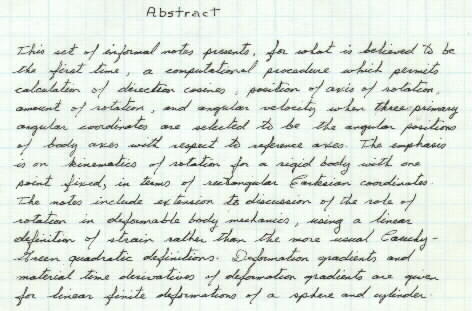 Abstract
This set of informal notes presents, for what is believed to be
the first time, a computational procedure which permits
calculation of direction cosines, position of axis of rotation,
amount of rotation, and angular velocity, when three primary
angular coordinates are selected to be the angular positions
of body axes with respect to reference axes. The emphasis
is on kinematics of rotation for a rigid body with one
point fixed, in terms of rectangular Cartesian coordinates.
The notes include extension to discussion of the role of
rotation in deformable body mechanics, using a linear
definition of strain rather than the more usual Cauchy-
Green quadratic definitions. Deformation gradients and
material time derivatives of deformation gradients are given
for linear finite deformations of a sphere and cylinder.